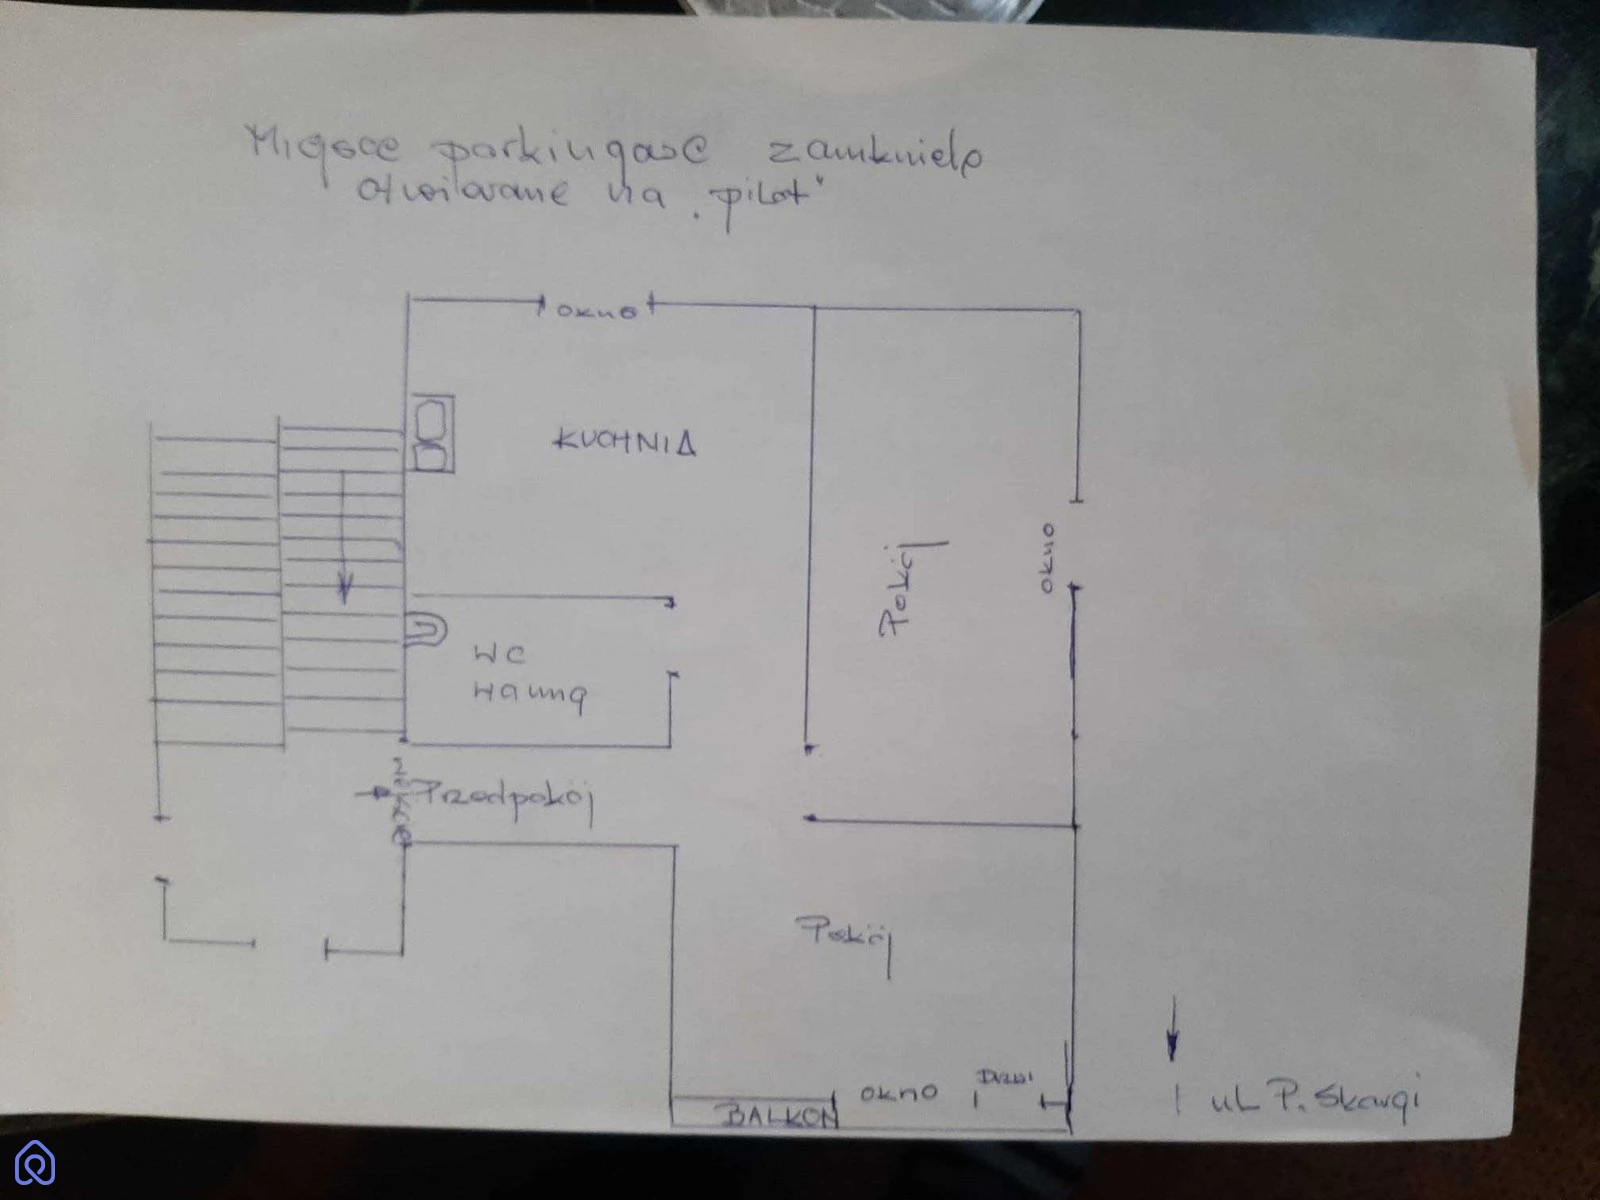 Miejsce parkingowe zamknięte
otwierane na "pilot"
okno
KUCHNIA
Pokój
okno
WC
Wanna
Przedpokój
Pokój
okno
Drzwi
BALKON
ul P. Skargi